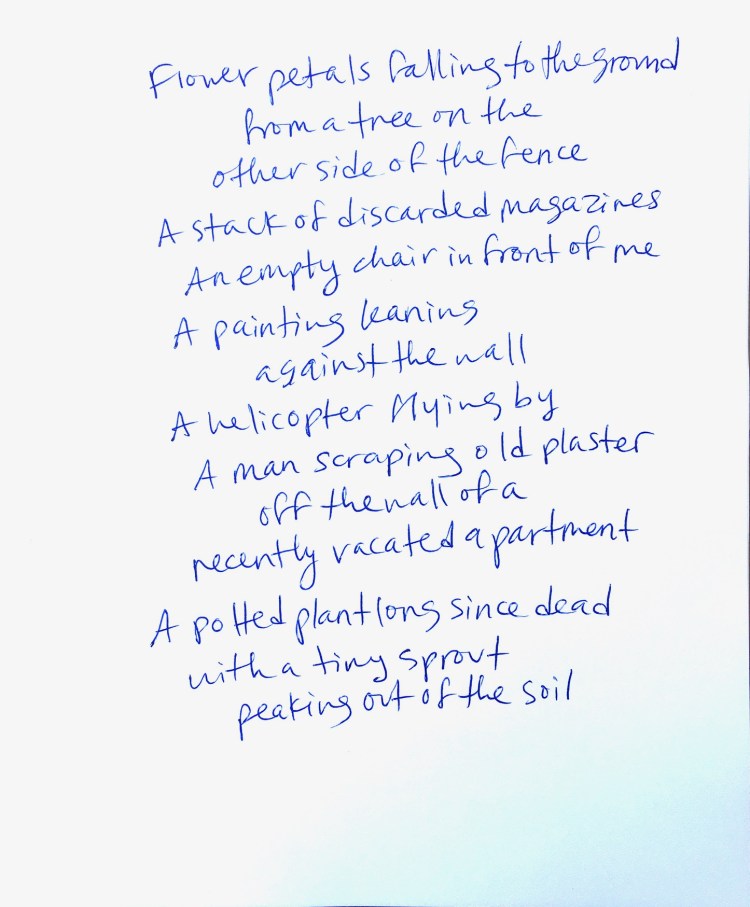 Flower petals falling to the ground
from a tree on the
other side of the fence
A stack of discarded magazines
An empty chair in front of me
A painting leaning
against the wall
A helicopter flying by
A man scraping old plaster
off the wall of a
recently vacated apartment
A potted plant long since dead
with a tiny sprout
peaking out of the soil